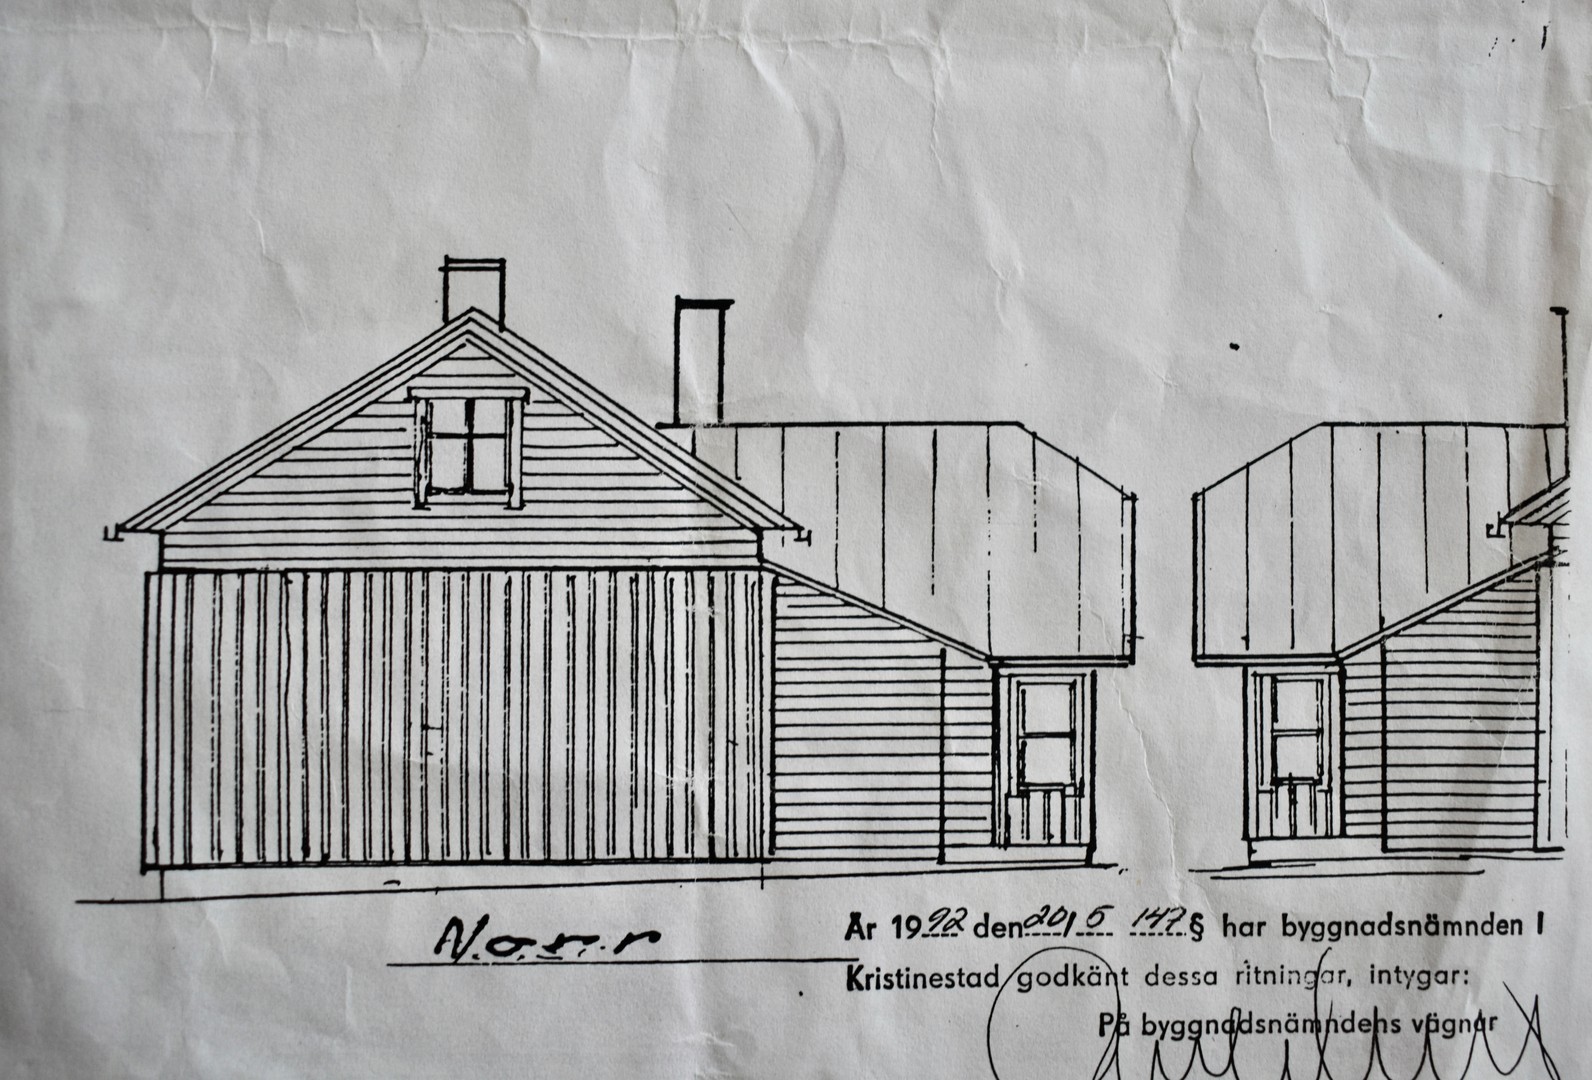 Norr
År 1992 den 20/5 147 § har byggnadsnämnden I
Kristinestad godkänt dessa ritningar, intygar:
På byggnadsnämndens vägnar